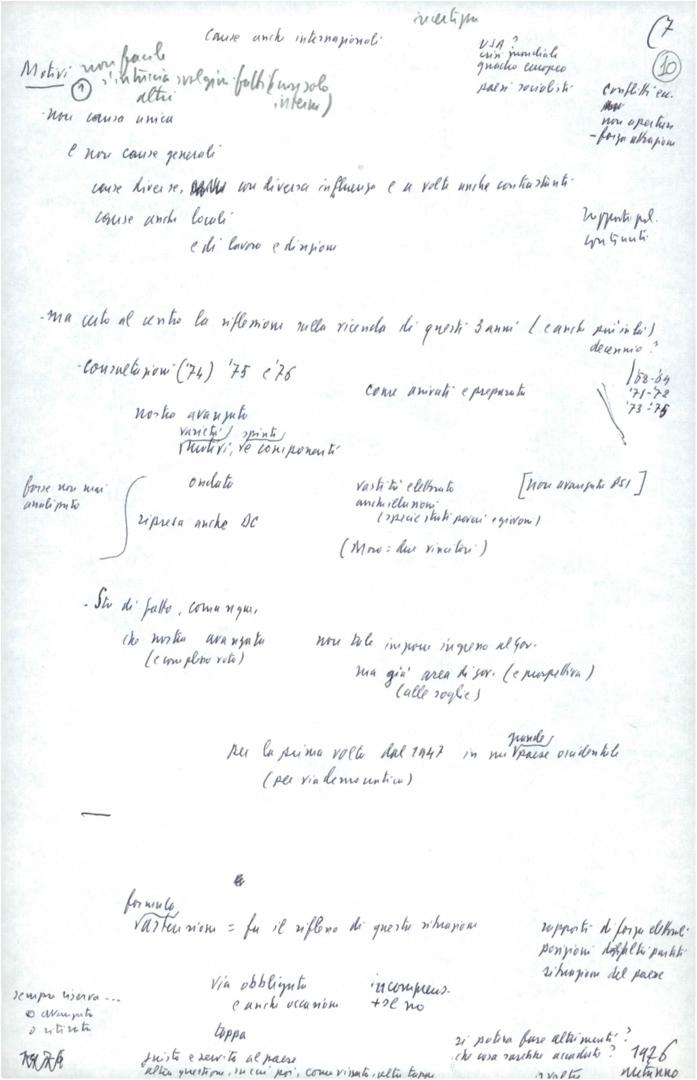 (7
10
incertezza
Cause anche internazionali
USA?
crisi mondiale
quadro europeo
paesi socialisti
conflitti
non apertura
- forza attrazione
Motivi non facile
① s'intreccia svolgim. fatti (non solo interni)
altri
- non causa unica
e non cause generali
cause diverse, con diversa influenza e a volte anche contrastanti
cause anche locali
e di lavoro e direzione
rapporto pol.
continenti
- ma certo al centro la riflessione sulla vicenda di questi 3 anni (e anche più in là)
decennio?
'68-'69
'71-'72
'73-'75
- Consultazioni ('74) '75 e '76
come arrivati e preparati
nostra avanzata
varietà spinte
motivi, componenti
forse non mai
analizzato
ondata
ripresa anche DC
vastità elettorato
anche illusioni
(specie strati poveri e giovani)
[non avanzata PSI]
(Moro = due vincitori)
- Sta di fatto, comunque,
che nostra avanzata
(e complesso voto)
non tale imporre ingresso al gov.
ma già area di gov. (e prospettiva)
(alle soglie)
per la prima volta dal 1947 in un grande paese occidentale
(per via democratica)
formula
astensione = fu il riflesso di questa situazione
rapporti di forza elettorali
posizioni degli altri partiti
situazione del paese
via obbligata
e anche occasione
incomprens.
+ se no
sempre riserva...
o avanzata
o ritirata
tappa
giusta e servita al paese
altra questione, in cui poi, come visuta, altra tappa
si poteva fare altrimenti?
che cosa sarebbe accaduto?
1976
autunno